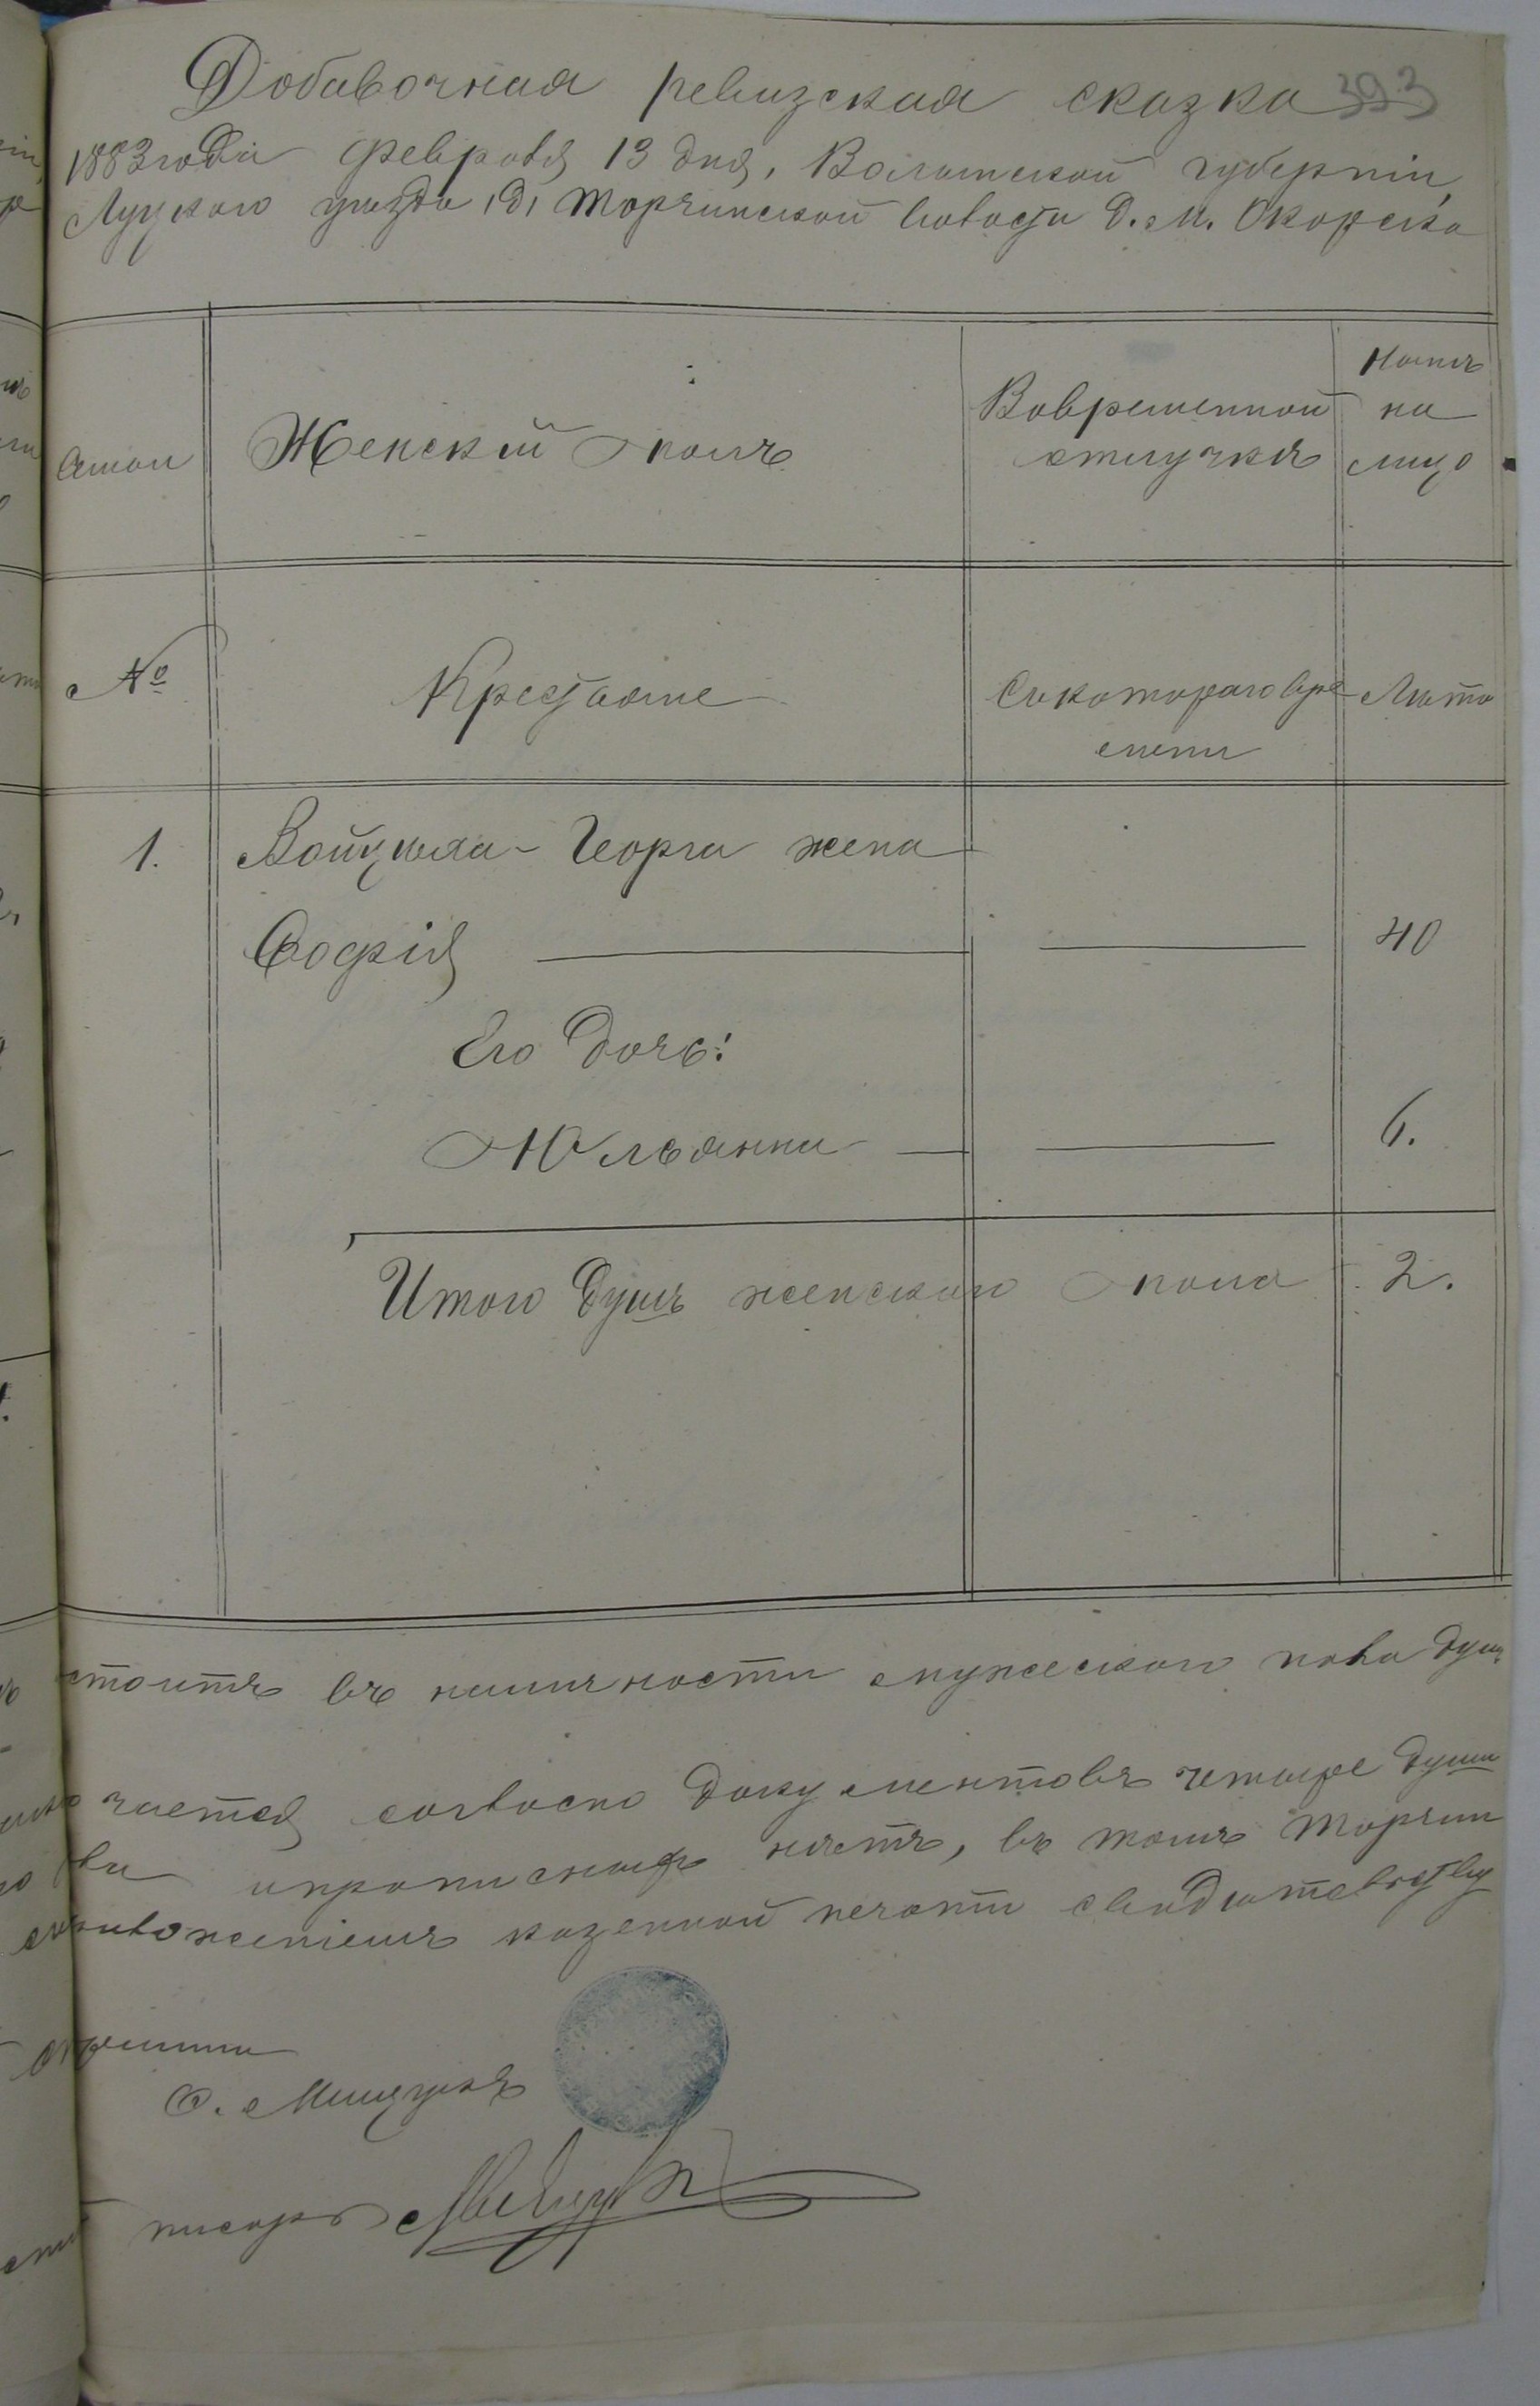 Добавочная ревизская сказка 393
1883 года Февраля 13 дня, Волынской губерніи,
Луцкаго уѣзда, Торчинской волости д. М. Окорска
Семьи
Женскій полъ
Вовременной
отлучкѣ
Нынѣ
на
лицо
№
Крестьяне
Съкотораго вре
мени
Лѣта
1. Войцеха - Георга жена
Софія 40
Его дочь:
Юльянна 6.
Итого душъ женскаго пола 2.
стоитъ въ наличности мужескаго пола душ
чается согласно документовъ четыре души
прописныхъ нѣтъ, въ томъ Торчин
приложеніемъ казенной печати свидѣтельству
старшина
писарь